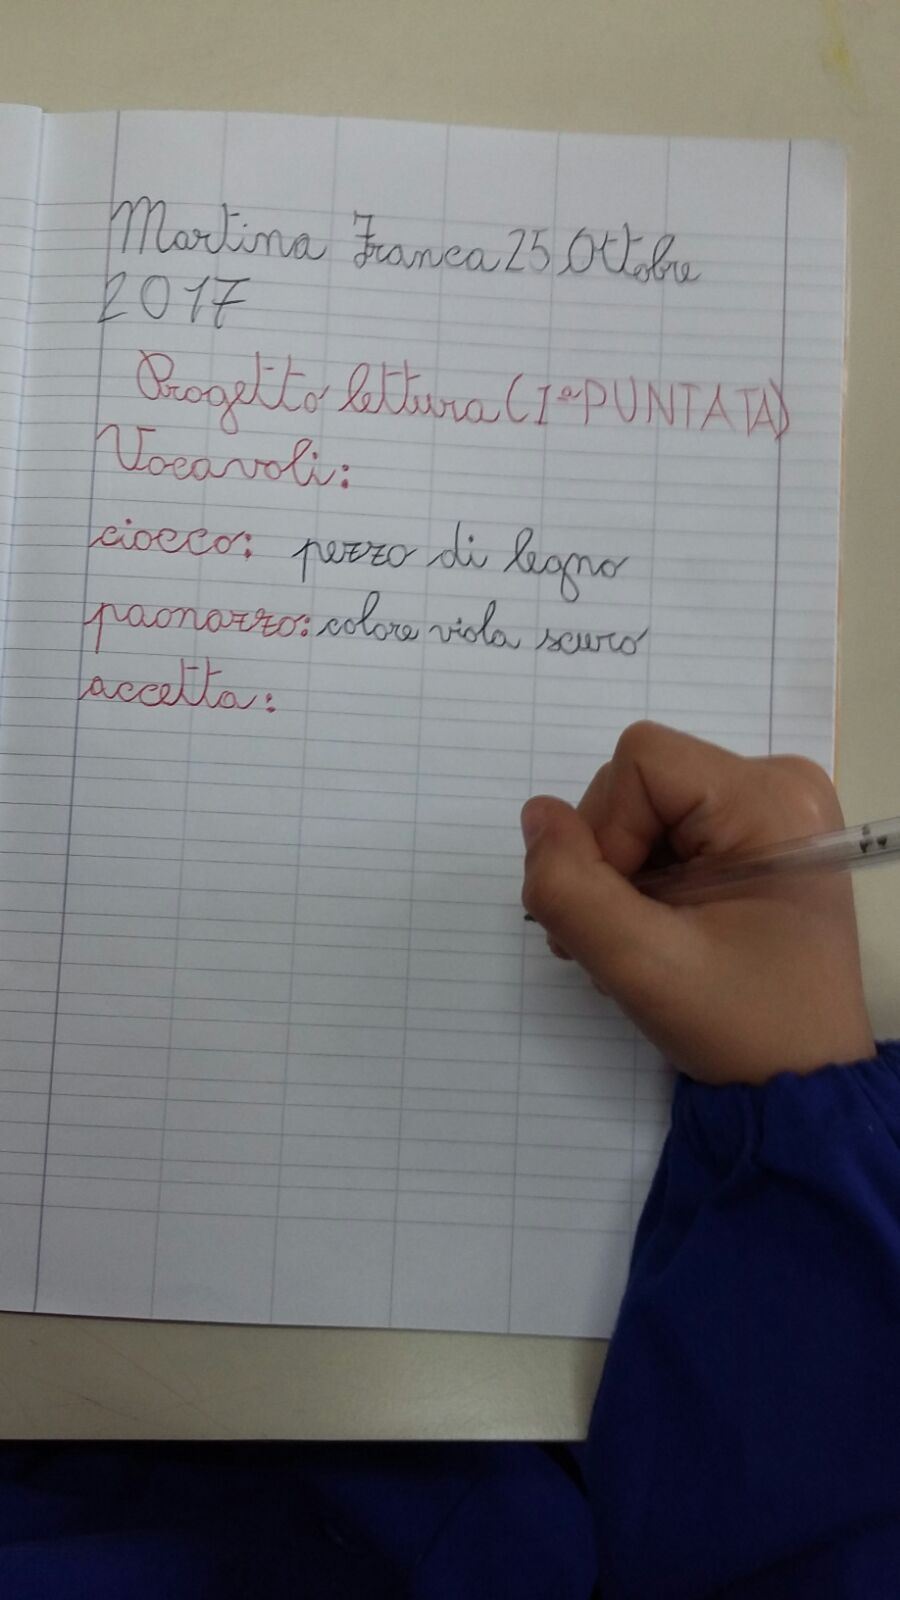 Martina Franca 25 Ottobre
2017
Progetto lettura (1ª PUNTATA)
Vocavoli:
ciocco: pezzo di legno
paonazzo: colore viola scuro
accetta: